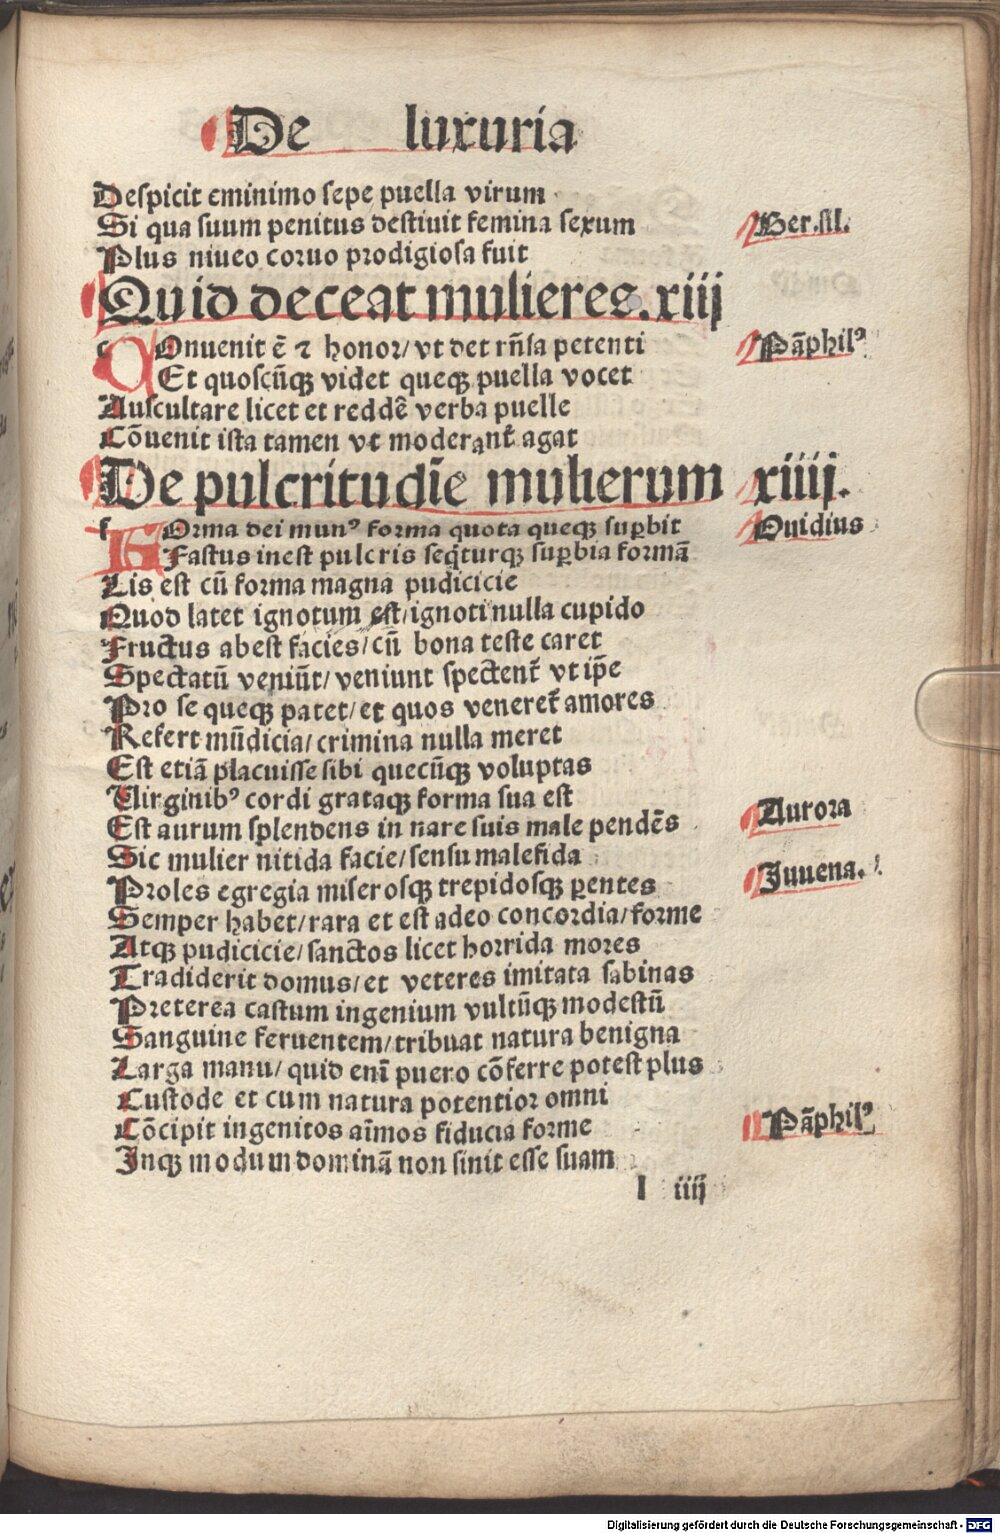 De luxuria
Despicit eminimo sepe puella virum
Si qua suum penitus destiuit femina sexum
Ber.sil.
Plus niueo coruo prodigiosa fuit
Quid deceat mulieres.xiij
cOnuenit ē ⁊ honor/ vt det rn̄sa petenti
Pāphilꝰ
Et quoscūqꝫ videt queqꝫ puella vocet
Auscultare licet et reddē verba puelle
Cōuenit ista tamen vt moderant̄ agat
De pulcritudīe mulierum xiiij.
fOrma dei munꝰ forma quota queqꝫ suꝑbit
Ouidius
Fastus inest pulcris seq̄turqꝫ suꝑbia formā
Lis est cū forma magna pudicicie
Quod latet ignotum est/ignoti nulla cupido
Fructus abest facies/cū bona teste caret
Spectatū veniūt/veniunt spectent̄ vt ip̄e
Pro se queqꝫ patet/et quos veneret̄ amores
Refert mūdicia/crimina nulla meret
Est etiā placuisse sibi quecūqꝫ voluptas
Uirginibꝰ cordi grataqꝫ forma sua est
Est aurum splendens in nare suis male pendēs
Aurora
Sic mulier nitida facie/sensu malefida
Proles egregia miserosqꝫ trepidosqꝫ ꝑentes
Iuuena.
Semper habet/rara et est adeo concordia/forme
Atqꝫ pudicicie/sanctos licet horrida mores
Tradiderit domus/et veteres imitata sabinas
Preterea castum ingenium vultūqꝫ modestū
Sanguine feruentem/tribuat natura benigna
Larga manu/quid enī puero cōferre potest plus
Custode et cum natura potentior omni
Cōcipit ingenitos aīmos fiducia forme
Pāphilꝰ
Inqꝫ modum dominā non sinit esse suam
I iiij
Digitalisierung gefördert durch die Deutsche Forschungsgemeinschaft - DFG